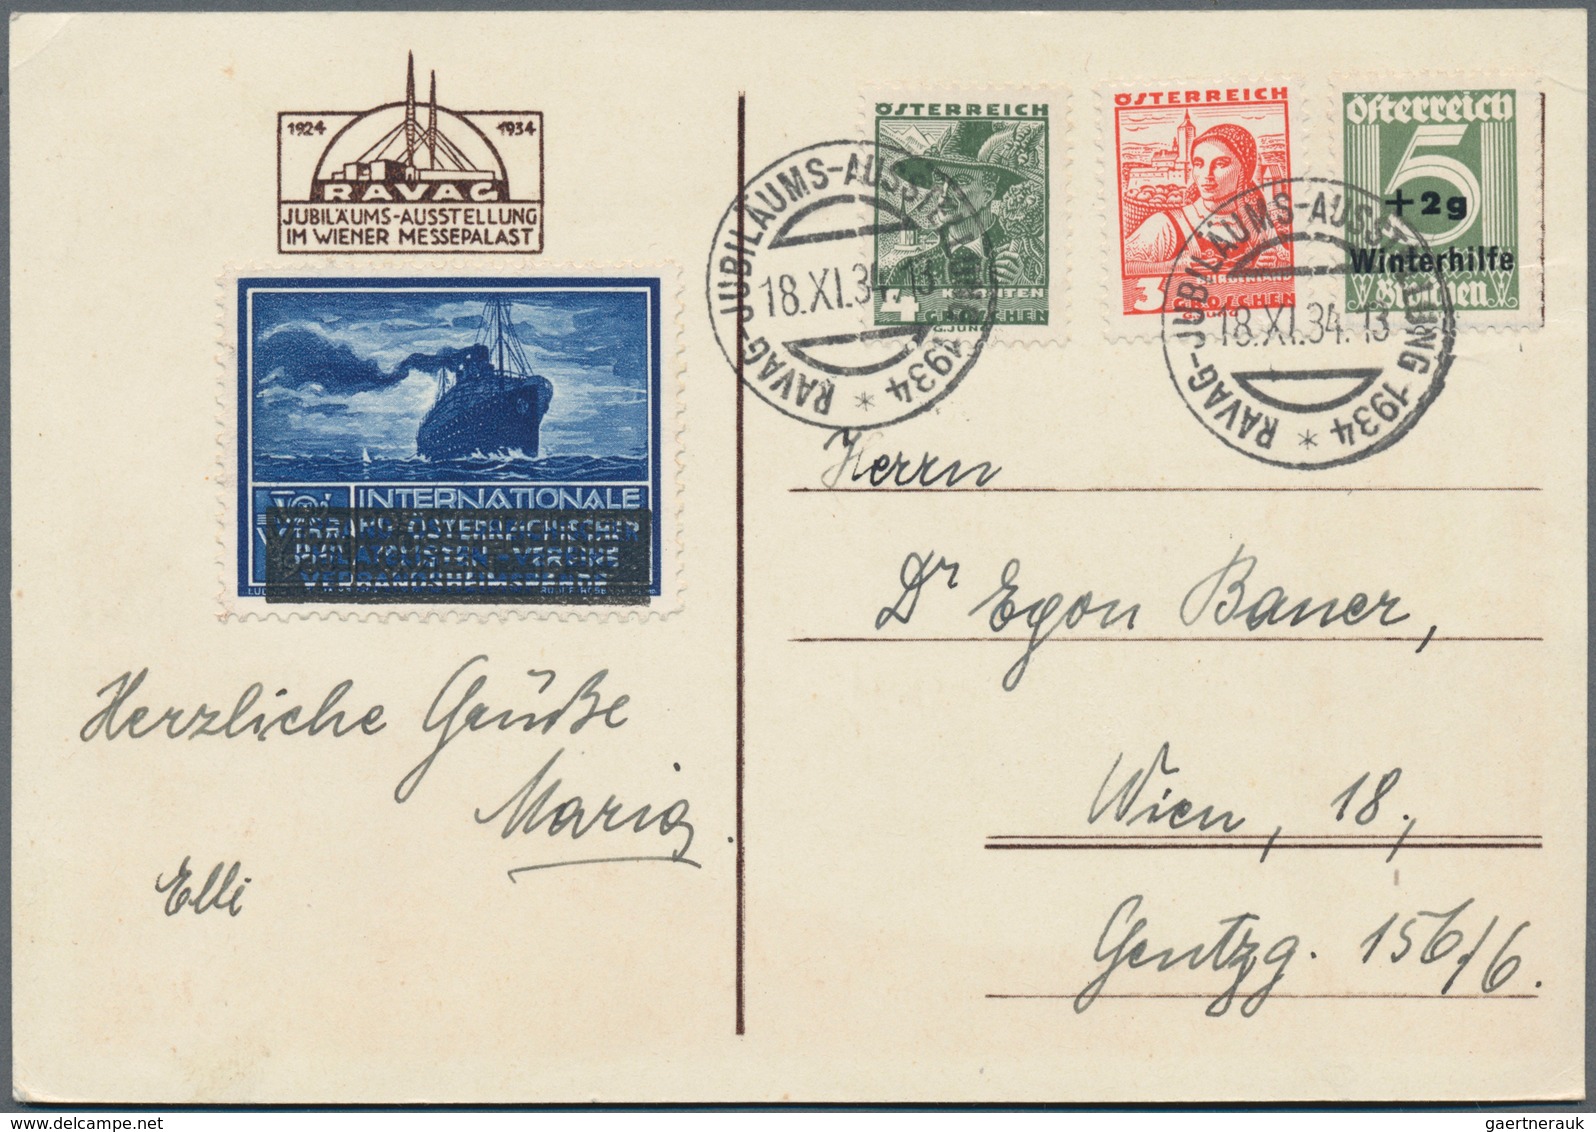 1924 1934
RAVAG
JUBILÄUMS-AUSSTELLUNG
IM WIENER MESSEPALAST
INTERNATIONALE
Herzliche Grüße
Maria
Elli
ÖSTERREICH
KÄRNTEN
4 GROSCHEN
ÖSTERREICH
BURGENLAND
3 GROSCHEN
Österreich
5
+2g
Winterhilfe
Groschen
RAVAG-JUBILÄUMS-AUSSTELLUNG 1934 *
18.XI.34.13
RAVAG-JUBILÄUMS-AUSSTELLUNG 1934 *
18.XI.34.13
Herrn
Dr Egon Bauer,
Wien, 18.,
Gentzg. 156/6.
gaertnerauk